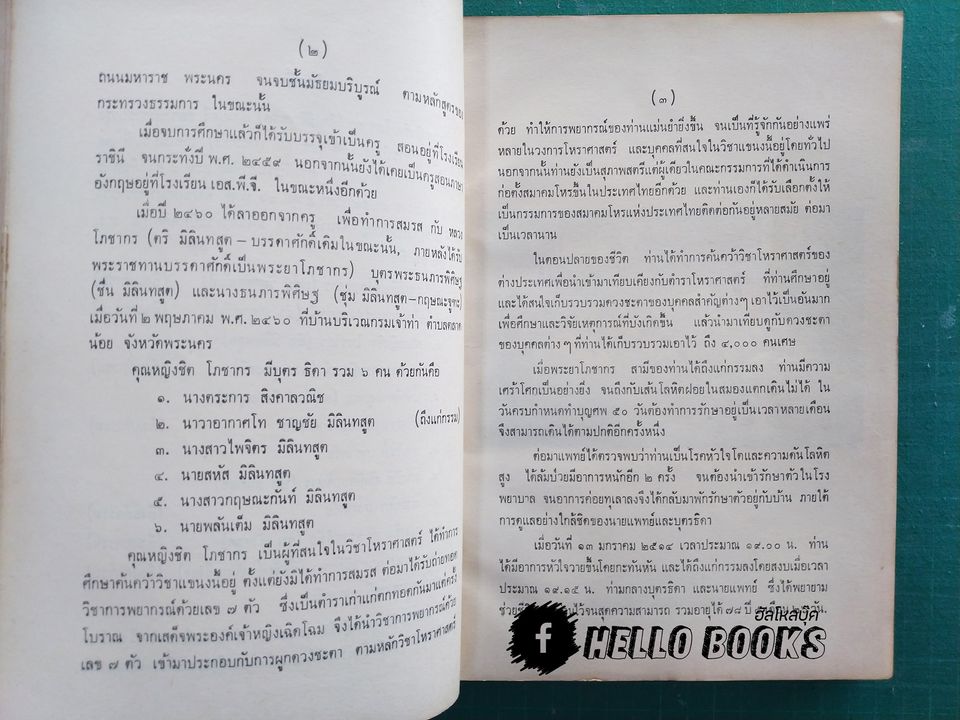 (๒)
ถนนมหาราช พระนคร จนจบชั้นมัธยมบริบูรณ์ ตามหลักสูตรของ
กระทรวงธรรมการ ในขณะนั้น
เมื่อจบการศึกษาแล้วก็ได้รับบรรจุเข้าเป็นครู สอนอยู่ที่โรงเรียน
ราชินี จนกระทั่งปี พ.ศ. ๒๔๕๙ นอกจากนั้นยังได้เคยเป็นครูสอนภาษา
อังกฤษอยู่ที่โรงเรียน เอส.พี.จี. ในขณะหนึ่งอีกด้วย
เมื่อปี ๒๔๖๐ ได้ลาออกจากครู เพื่อทำการสมรส กับ หลวง
โภชากร (ตริ มิลินทสูต – บรรดาศักดิ์เดิมในขณะนั้น, ภายหลังได้รับ
พระราชทานบรรดาศักดิ์เป็นพระยาโภชากร) บุตรพระธนภารพิศิษฐ
(ชื่น มิลินทสูต) และนางธนภารพิศิษฐ (ชุ่ม มิลินทสูต–กฤษณะจูฑะ)
เมื่อวันที่ ๒ พฤษภาคม พ.ศ. ๒๔๖๐ ที่บ้านบริเวณกรมเจ้าท่า ตำบลตลาด
น้อย จังหวัดพระนคร
คุณหญิงชิต โภชากร มีบุตร ธิดา รวม ๖ คน ด้วยกันคือ
๑. นางตระการ สิงคาลวณิช
๒. นาวาอากาศโท ชาญชัย มิลินทสูต (ถึงแก่กรรม)
๓. นางสาวไพจิตร มิลินทสูต
๔. นายสหัส มิลินทสูต
๕. นางสาวกฤษณะกันท์ มิลินทสูต
๖. นายพลันเต็ม มิลินทสูต
คุณหญิงชิต โภชากร เป็นผู้ที่สนใจในวิชาโหราศาสตร์ ได้ทำการ
ศึกษาค้นคว้าวิชาแขนงนี้อยู่ ตั้งแต่ยังมิได้ทำการสมรส ต่อมาได้รับถ่ายทอด
วิชาการพยากรณ์ด้วยเลข ๗ ตัว ซึ่งเป็นตำราเก่าแก่ตกทอดกันมาแต่ครั้ง
โบราณ จากเสด็จพระองค์เจ้าหญิงเฉิดโฉม จึงได้นำวิชาการพยากรณ์ด้วย
เลข ๗ ตัว เข้ามาประกอบกับการผูกดวงชะตา ตามหลักวิชาโหราศาสตร์
(๓)
ด้วย ทำให้การพยากรณ์ของท่านแม่นยำยิ่งขึ้น จนเป็นที่รู้จักกันอย่างแพร่
หลายในวงการโหราศาสตร์ และบุคคลที่สนใจในวิชาแขนงนี้อยู่โดยทั่วไป
นอกจากนั้นท่านยังเป็นสุภาพสตรีแต่ผู้เดียวในคณะกรรมการที่ได้ดำเนินการ
ก่อตั้งสมาคมโหรขึ้นในประเทศไทยอีกด้วย และท่านเองก็ได้รับเลือกตั้งให้
เป็นกรรมการของสมาคมโหรแห่งประเทศไทยติดต่อกันอยู่หลายสมัย ต่อมา
เป็นเวลานาน
ในตอนปลายของชีวิต ท่านได้ทำการค้นคว้าวิชาโหราศาสตร์ของ
ต่างประเทศเพื่อนำเข้ามาเทียบเคียงกับตำราโหราศาสตร์ ที่ท่านศึกษาอยู่
และได้สนใจเก็บรวบรวมดวงชะตาของบุคคลสำคัญต่างๆ เอาไว้เป็นอันมาก
เพื่อศึกษาและวิจัยเหตุการณ์ที่บังเกิดขึ้น แล้วนำมาเทียบดูกับดวงชะตา
ของบุคคลต่าง ๆ ที่ท่านได้เก็บรวบรวมเอาไว้ ถึง ๔,๐๐๐ คนเศษ
เมื่อพระยาโภชากร สามีของท่านได้ถึงแก่กรรมลง ท่านมีความ
เศร้าโศกเป็นอย่างยิ่ง จนถึงกับเส้นโลหิตฝอยในสมองแตกเดินไม่ได้ ใน
วันครบกำหนดทำบุญศพ ๕๐ วันต้องทำการรักษาอยู่เป็นเวลาหลายเดือน
จึงสามารถเดินได้ตามปกติอีกครั้งหนึ่ง
ต่อมาแพทย์ได้ตรวจพบว่าท่านเป็นโรคหัวใจโตและความดันโลหิต
สูง ได้ล้มป่วยมีอาการหนักอีก ๒ ครั้ง จนต้องนำเข้ารักษาตัวในโรง
พยาบาล จนอาการค่อยทุเลาลงจึงได้กลับมาพักรักษาตัวอยู่กับบ้าน ภายใต้
การดูแลอย่างใกล้ชิดของนายแพทย์และบุตรธิดา
เมื่อวันที่ ๑๓ มกราคม ๒๕๑๔ เวลาประมาณ ๑๙.๐๐ น. ท่าน
ได้มีอาการหัวใจวายขึ้นโดยกะทันหัน และได้ถึงแก่กรรมลงโดยสงบเมื่อเวลา
ประมาณ ๑๙.๑๕ น. ท่ามกลางบุตรธิดา และนายแพทย์ ซึ่งได้พยายาม
ช่วยชีวิต ไว้จนสุดความสามารถ รวมอายุได้ ๗๘ ปี วัน.
ฮัลโหลบุ๊ค
f HELLO BOOKS